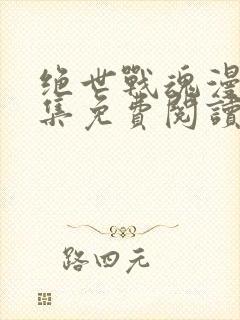 绝世戰魂漫
集免費閱讀
路四元